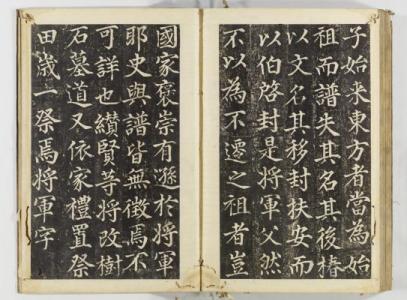 子始来東方者當為始
祖而譜失其名其後椿
以文名其移封扶安而
以伯啓封是將軍父然
不以為不遷之祖者豈
國家褒崇有遜於將軍
耶史與譜皆無徴焉不
可詳也纉賢等將改樹
石墓道又依家禮置祭
田歳一祭焉將軍字